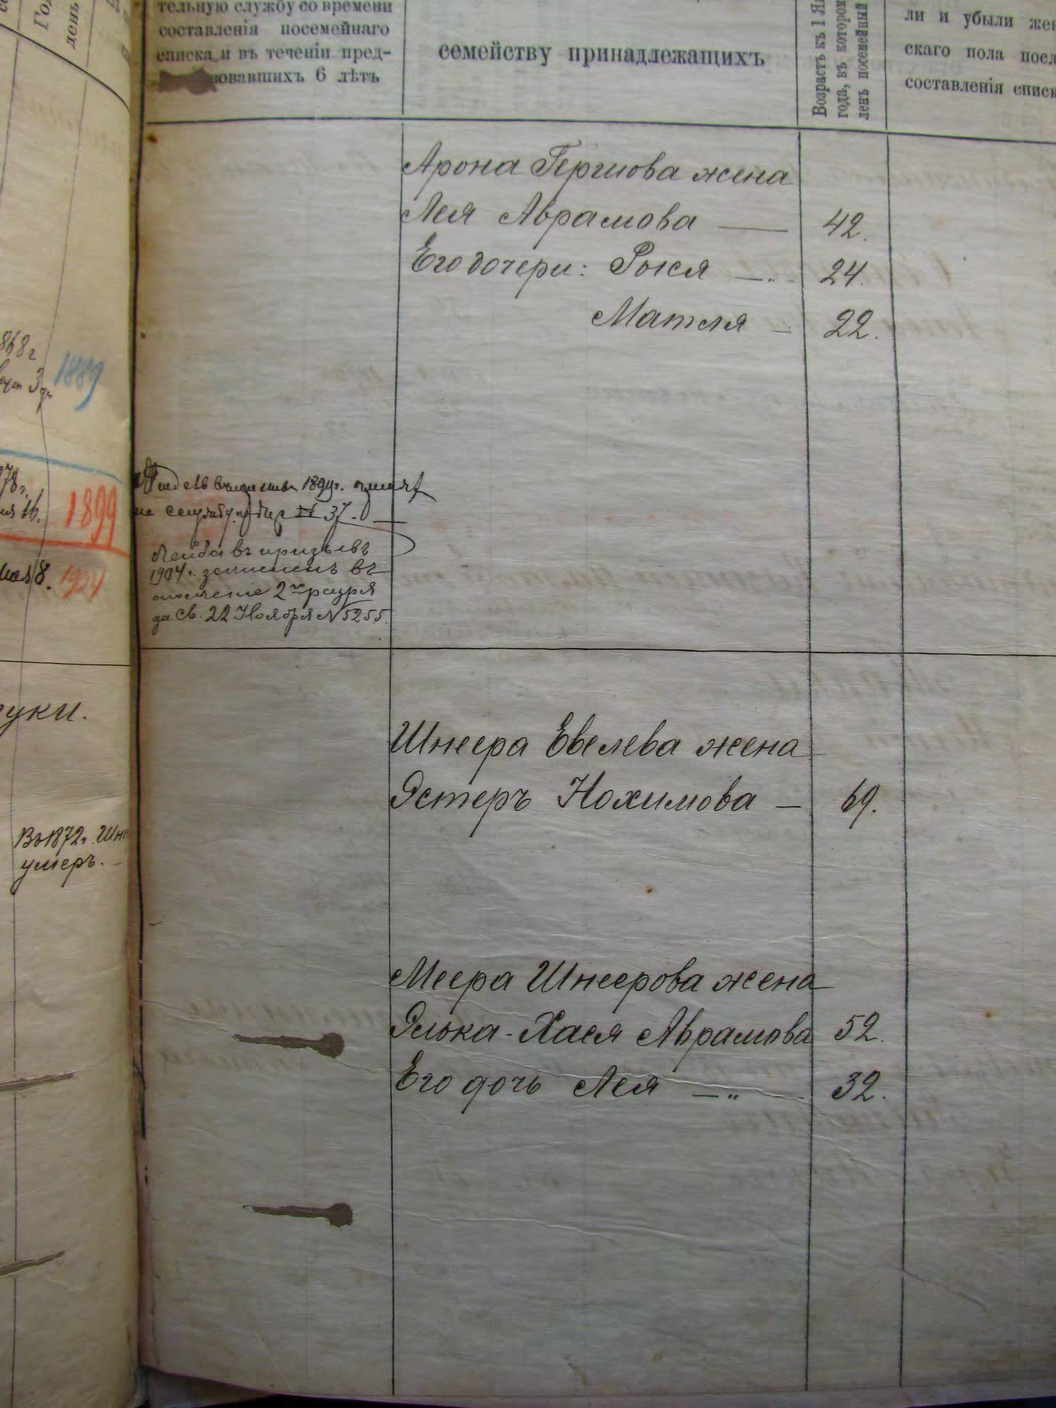 тельную службу со времени
составленія посемейнаго
списка и въ теченіи пред-
вовавшихъ 6 лѣтъ
семейству принадлежащихъ
Возрастъ къ 1 Ян
года, въ котором
ленъ посемейный
ли и убыли жен
скаго пола посл
составленія списк
Арона Гершова жена
Лея Аврамова — 42.
Его дочери: Ройся — 24.
Матля — 22.
868 г
1889
78 г.
1899
1904
1899 г.
на службу 37.
Лейба въ призывъ
1904 г. зачисленъ въ
ополчение 2го разряд
за св. 22 Ноября № 5255
уки.
Шнеера Евелева жена
Эстеръ Нохимова — 69.
Въ 1872 г. Шне
умеръ. —
Меера Шнеерова жена
Элька-Хася Аврамова 52.
Его дочь Лея — „ 32.